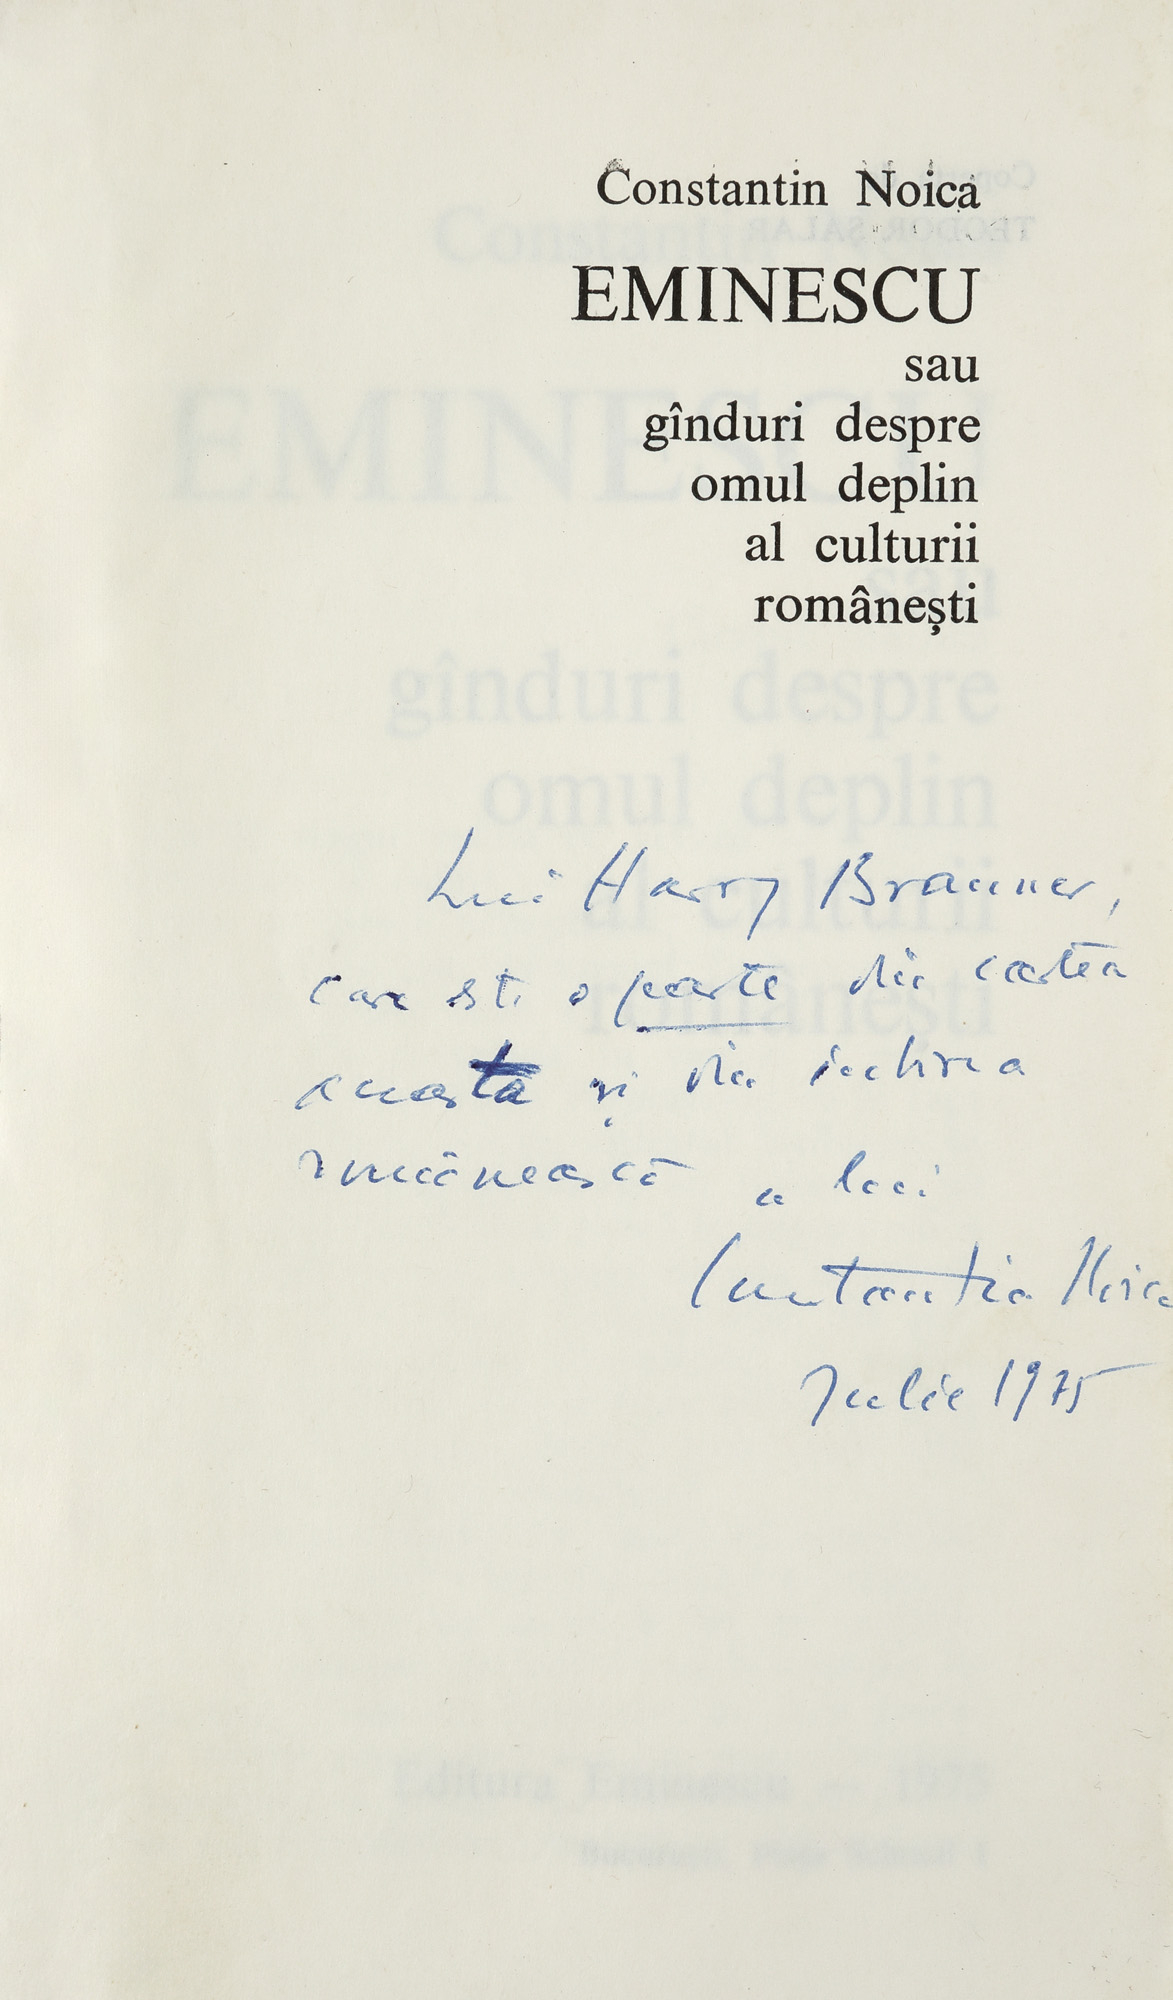 Constantin Noica
EMINESCU
sau
gînduri despre
omul deplin
al culturii
românești
Lui Harry Brauner,
care este o parte din cartea
aceasta și din iubirea
românească a lui
Constantin Noica
Iulie 1975